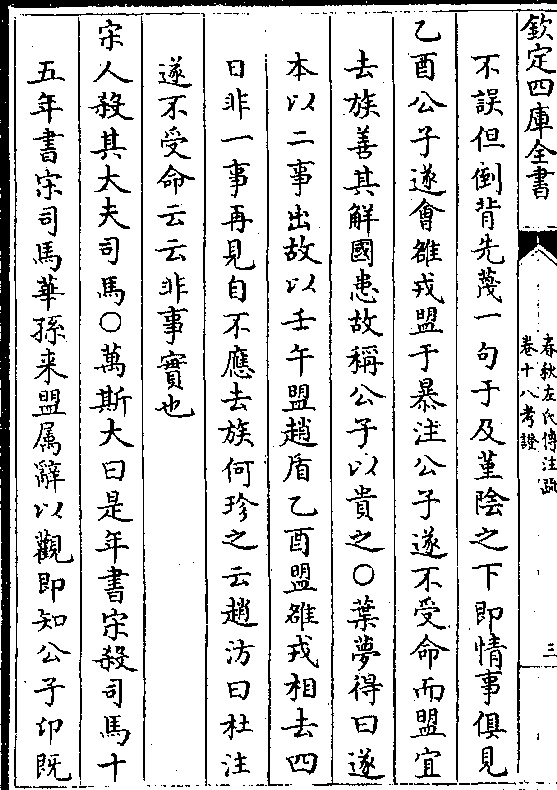 欽定四庫全書
春秋左氏傳注疏
卷十八考證
三
不誤但倒背先蔑一句于及堇陰之下即情事俱見
乙酉公子遂會雒戎盟于暴注公子遂不受命而盟宜
去族善其解國患故稱公子以貴之○葉夢得曰遂
本以二事出故以壬午盟趙盾乙酉盟雒戎相去四
日非一事再見自不應去族何珍之云趙汸曰杜注
遂不受命云云非事實也
宋人殺其大夫司馬○萬斯大曰是年書宋殺司馬十
五年書宋司馬華孫来盟属辭以觀即知公子卬既